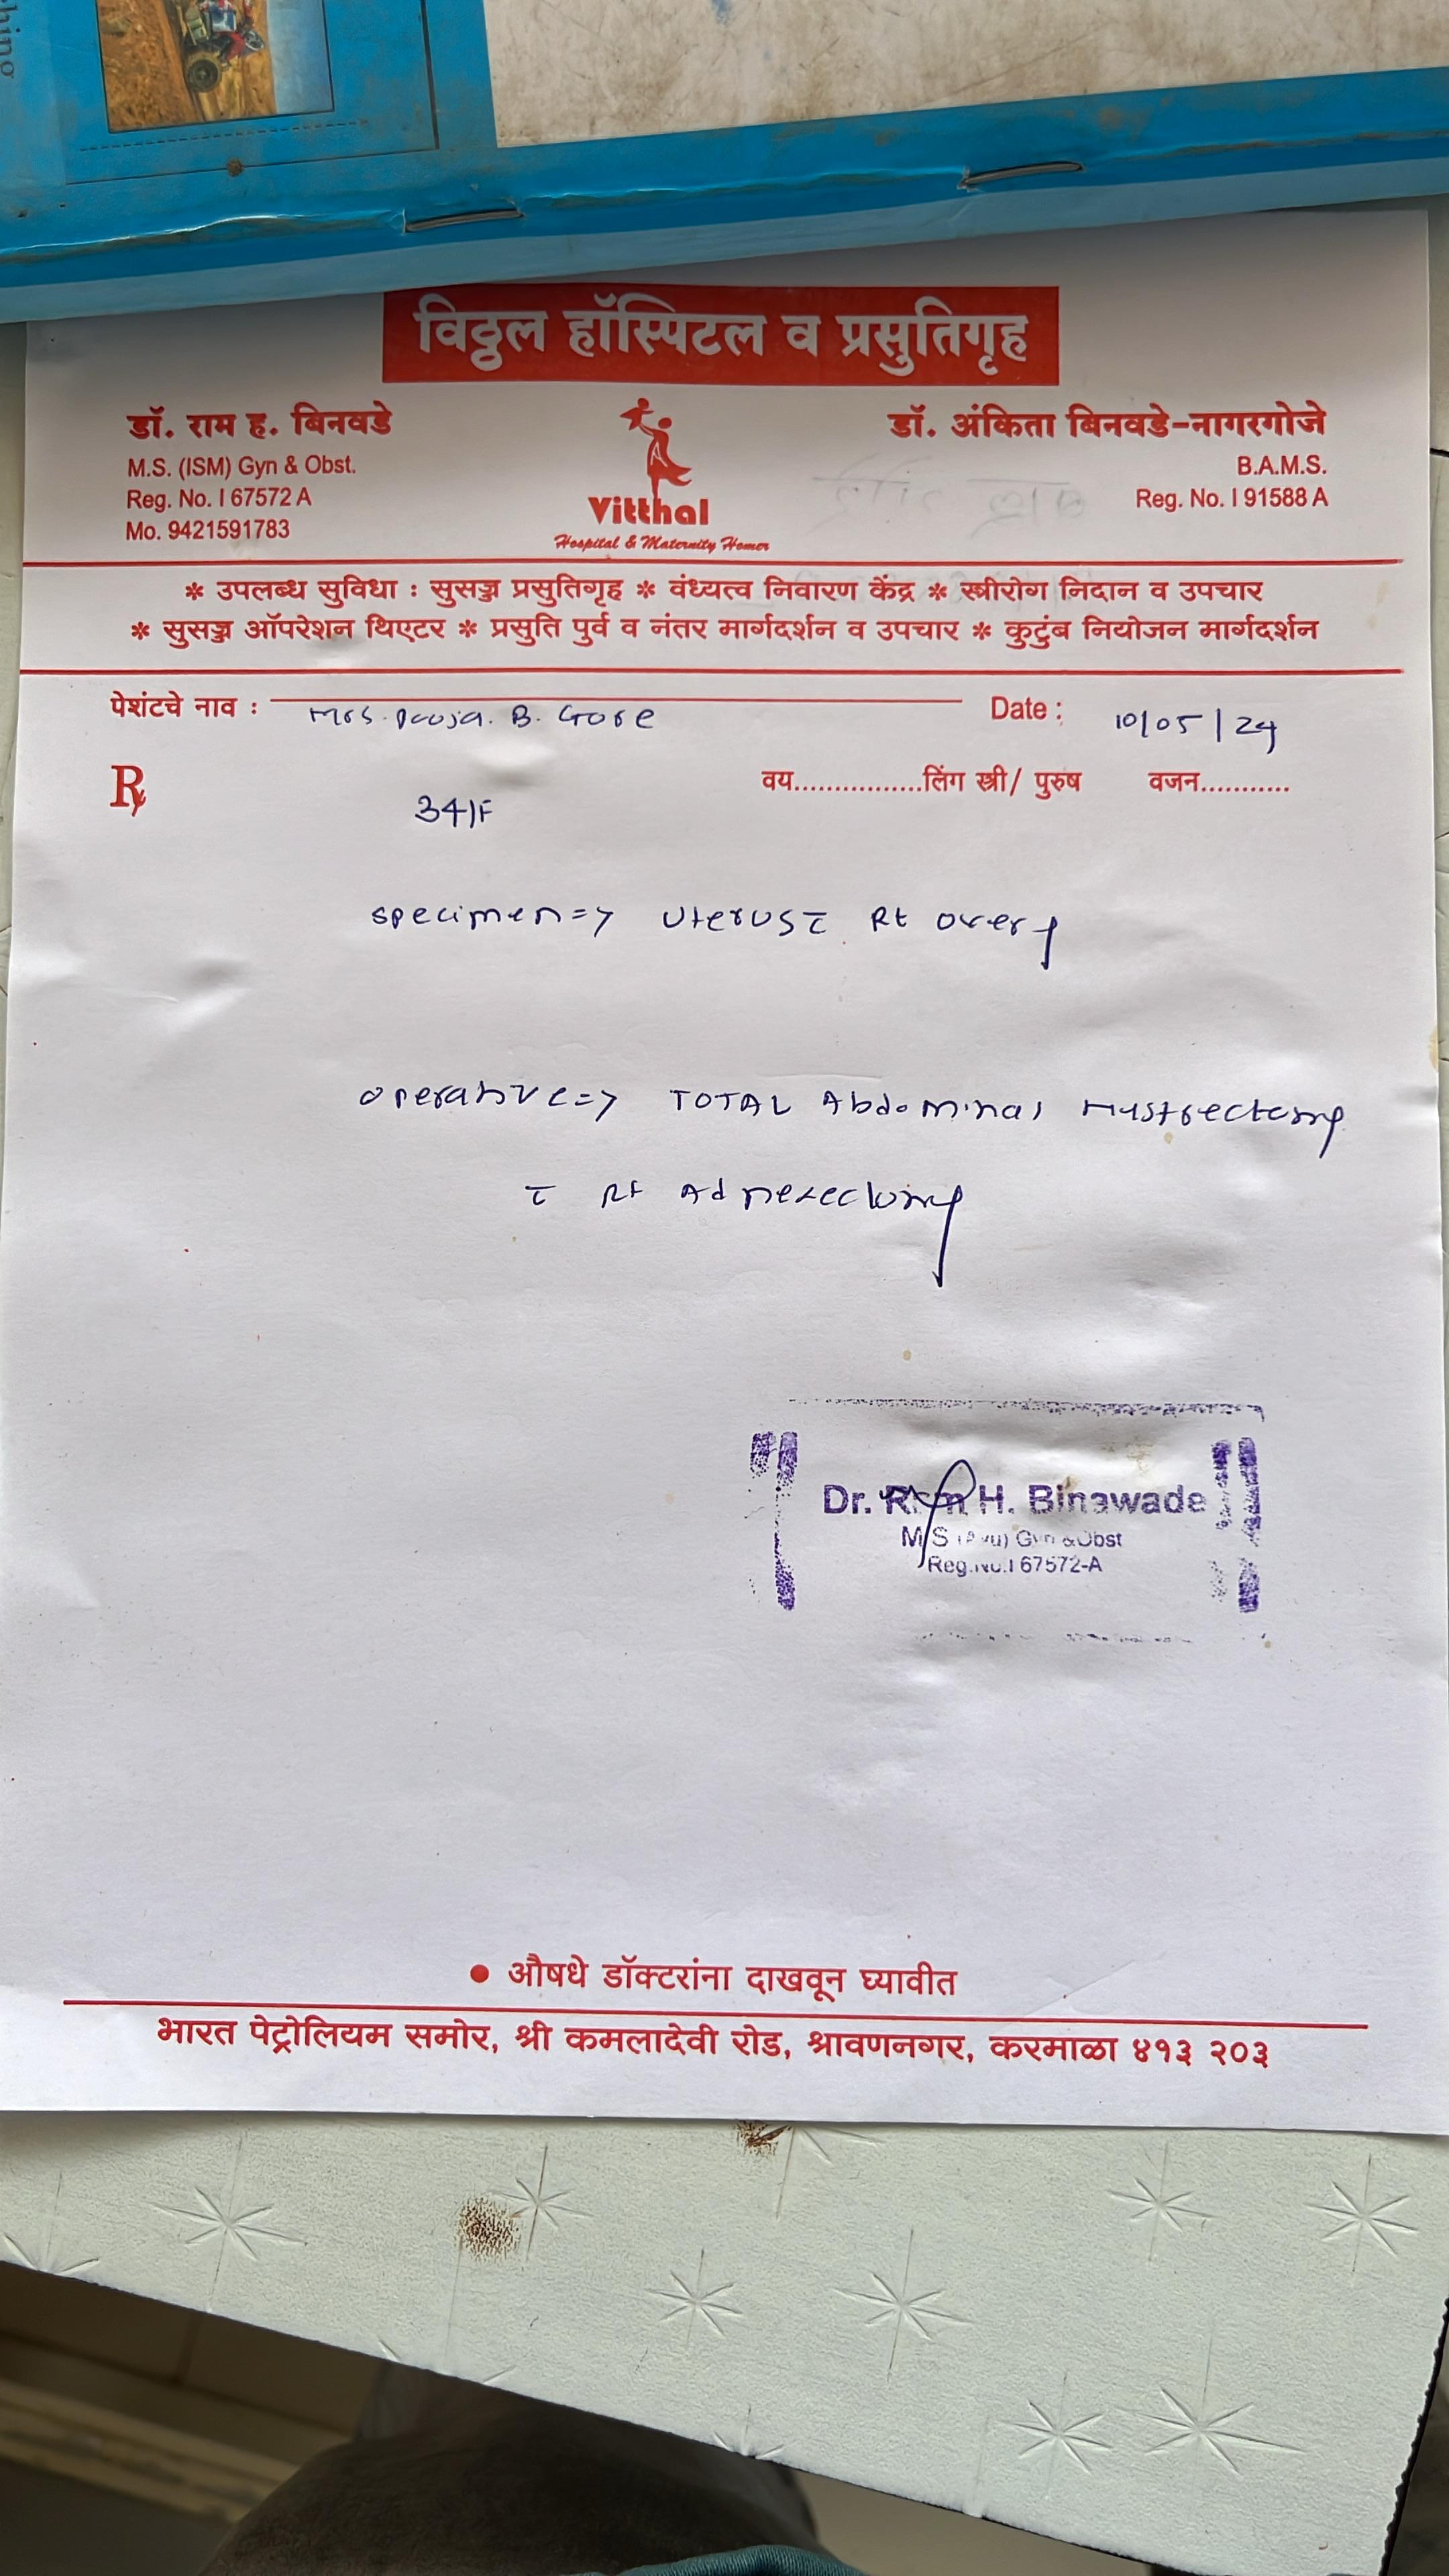 विठ्ठल हॉस्पिटल व प्रसुतिगृह
डॉ. राम ह. बिनवडे
M.S. (ISM) Gyn & Obst.
Reg. No. I 67572 A
Mo. 9421591783
Vitthal
Hospital & Maternity Homer
डॉ. अंकिता बिनवडे-नागरगोजे
B.A.M.S.
Reg. No. I 91588 A
* उपलब्ध सुविधा : सुसज्ज प्रसुतिगृह * वंध्यत्व निवारण केंद्र * स्त्रीरोग निदान व उपचार
* सुसज्ज ऑपरेशन थिएटर * प्रसुति पुर्व व नंतर मार्गदर्शन व उपचार * कुटुंब नियोजन मार्गदर्शन
पेशंटचे नाव : Mrs. Pooja. B. Gore Date : 10/05/24
Rx वय................लिंग स्त्री/ पुरुष वजन...........
34/F
specimen=> Uterus c̄ Rt overy
operative=> TOTAL Abdominal Hystrectomy
c̄ Rt Adnexectomy
Dr. Ram H. Binawade
M.S (Ayu) Gyn &Obst
Reg.No.I 67572-A
• औषधे डॉक्टरांना दाखवून घ्यावीत
भारत पेट्रोलियम समोर, श्री कमलादेवी रोड, श्रावणनगर, करमाळा ४१३ २०३